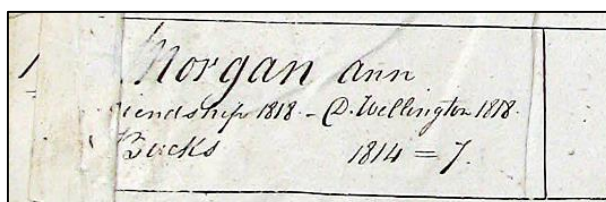 1 Morgan Ann
iendship 1818 - D. Wellington 1818.
Bucks 1814 = 7.